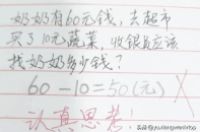 奶奶有60元钱，去超市
买了10元蔬菜，收银员应该
找奶奶多少钱？
60-10=50(元) ×
认真思考！